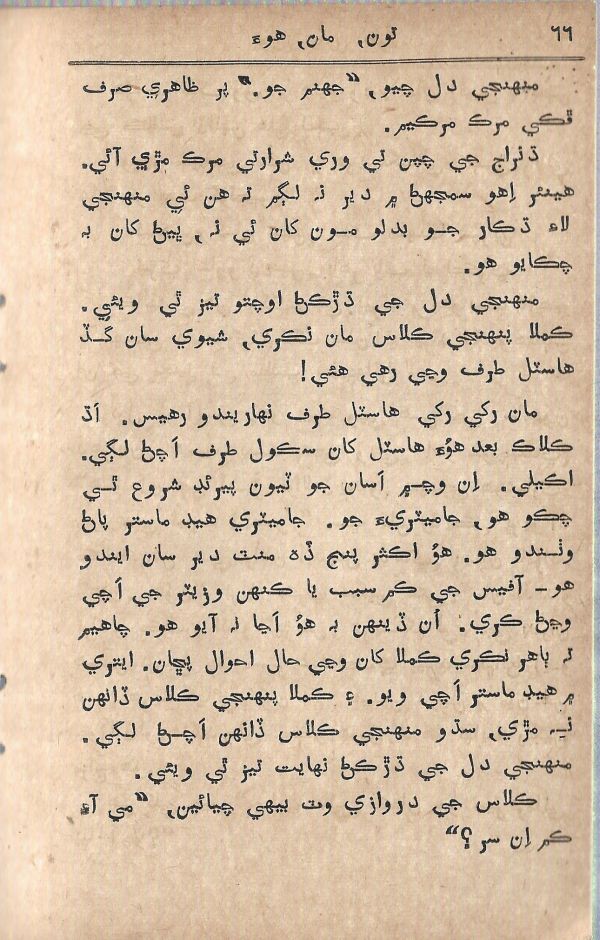 ٦٦ تون، مان، هوءَ
منهنجي دل چيو، “جهنم جو.” پر ظاهري صرف
ڦڪي مرڪ مرڪيم.
ڌنراج جي چپن تي وري شرارتي مرڪ مڙي آئي.
هينئر اِهو سمجهڻ ۾ دير نہ لڳم تہ هن ئي منهنجي
لاءِ ڌڪار جـو بدلو مـون کان ئي نہ، ڀيڻ کان بہ
چڪايو هو.
منهنجي دل جي ڌڙڪڻ اوچتو تيز ٿي ويئي.
ڪملا پنهنجي ڪلاس مان نڪري، شيوي سان گـڏ
هاسٽل طرف وڃي رهي هئي!
مان رکي رکي هاسٽل طرف نهاريندو رهيس. اَڌ
ڪلاڪ بعد هوءَ هاسٽل کان سڪول طرف اَچڻ لڳي.
اڪيلي. اِن وچـ۾ اَسان جو ٽيون پيرئڊ شروع ٿـي
چڪو هو، جاميٽريءَ جو. جاميٽري هيڊ ماستر پاڻ
وٺـندو هو. هوُ اڪثر پنج ڏه منٽ دير سان ايندو
هو– آفيس جي ڪم سبب يا ڪنهن وزيٽر جي اَچي
وڃڻ ڪري. اُن ڏينهن بہ هوُ اَڃا نہ آيو هو. چاهيم
تہ ٻاهر نڪري ڪملا کان وڃي حال احوال پڇان. ايتري
۾ هيڊ ماستر اَچي ويو. ۽ ڪملا پنهنجي ڪلاس ڏانهن
نـہ مڙي، سڌو منهنجي ڪلاس ڏانهن اَچـڻ لـڳي.
منهنجي دل جي ڌڙڪڻ نهايت تيز ٿي ويئي.
ڪلاس جي دروازي وٽ بيهي چيائين، “مي آءِ
ڪم اِن سر؟“